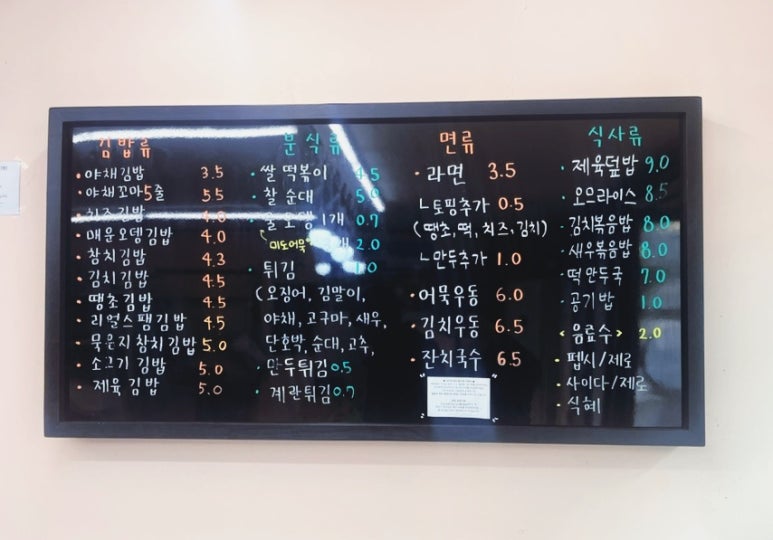 김밥류
야채김밥 3.5
야채꼬마5줄 5.5
치즈김밥 4.0
매운오뎅김밥 4.0
참치김밥 4.3
김치김밥 4.5
땡초김밥 4.5
리얼스팸김밥 4.5
묵은지참치김밥 5.0
소고기김밥 5.0
제육김밥 5.0
분식류
쌀떡볶이 4.5
찰순대 5.0
물오뎅 1개 0.7
미도어묵 2.0
튀김 1.0
(오징어, 김말이,
야채, 고구마, 새우,
단호박, 순대, 고추,
만두튀김 0.5
계란튀김 0.7
면류
라면 3.5
ㄴ토핑추가 0.5
(땡초, 떡, 치즈, 김치)
ㄴ만두추가 1.0
어묵우동 6.0
김치우동 6.5
잔치국수 6.5
식사류
제육덮밥 9.0
오므라이스 8.5
김치볶음밥 8.0
새우볶음밥 8.0
떡만두국 7.0
공기밥 1.0
<음료수> 2.0
펩시/제로
사이다/제로
식혜